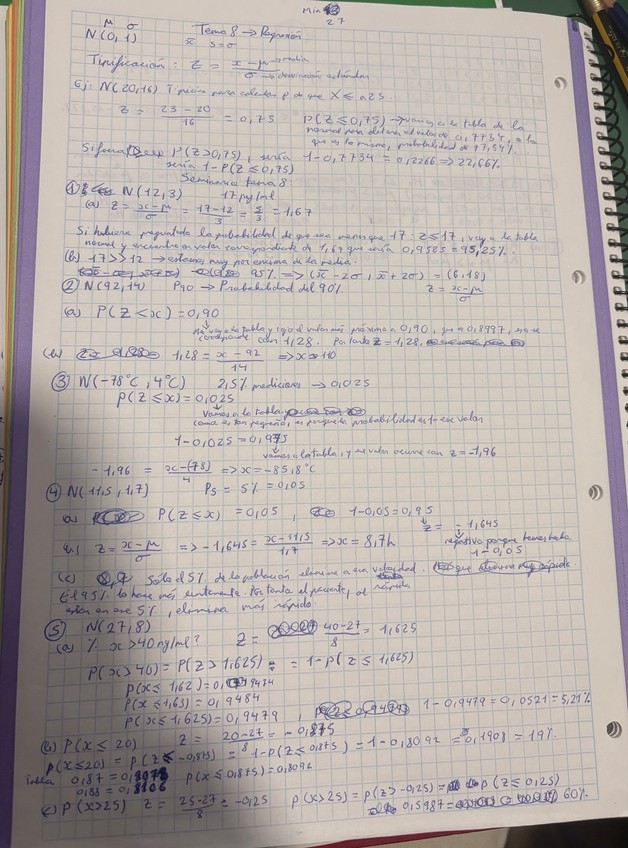 Min 27
μ σ
N(0,1) Tema 8 → Regresión
x̄ s=σ
Tipificación: z = x-μ → media / σ → desviación estándar
Ej: N(20,16) Tipifica para calcular p de que X ≤ a 23
z = 23-20 / 16 = 0,75 p(z ≤ 0,75) → vamos a la tabla de la
normal para obtener el valor de 0,7734, o lo
que es lo mismo, probabilidad de 77,34%
Si fuera p(z>0,75), sería 1-0,7734 = 0,2266 => 22,66%
sería 1-P(z ≤ 0,75)
Seminario tema 8
① N(12,3) 17 pg/ml
(a) z = x-μ / σ = 17-12 / 3 = 5/3 = 1,67
Si hubiera preguntado la probabilidad de que sea menor que 17: z ≤ 17, voy a la tabla
normal y encuentro el valor correspondiente de 1,67 que sería 0,9525 = 95,25%.
(b) 17 >> 12 → estamos muy por encima de la media.
95% => (x̄ - 2σ, x̄ + 2σ) = (6,18)
② N(92,14) P90 → Probabilidad del 90% z = x-μ / σ
(a) P(Z < x) = 0,90
voy a la tabla y cojo el valor más próximo a 0,90, que es 0,8997, que se
corresponde con 1,28. Por tanto z = 1,28.
(b) 1,28 = x-92 / 14 => x ≈ 110
③ N(-78°C, 4°C) 2,5% mediciones → 0,025
p(z ≤ x) = 0,025
Vamos a la tabla
como es tan pequeño, es porque la probabilidad es 1-ese valor
1-0,025 = 0,975
vamos a la tabla, y ese valor ocurre con z = -1,96
-1,96 = x-(78) / 4 => x = -85,8°C
④ N(11,5, 1,7] P5 = 5% = 0,05
a) P(z ≤ x) = 0,05, 1-0,05 = 0,95
z = -1,645
negativo porque hemos hecho
1-0,05
b) z = x-μ / σ => -1,645 = x-11,5 / 1,7 => x = 8,7h
(c) Sólo el 5% de la población elimina a esa velocidad.
El 95% lo hace más lentamente. Por tanto el paciente, al rápida
estar en ese 5%, elimina más rápido
⑤ N(27,8)
(a) % x > 40 ng/ml? z = 40-27 / 8 = 1,625
P(x>40) = P(z > 1,625) = 1-p(z ≤ 1,625)
p(x ≤ 1,62) = 0,9474
p(x ≤ 1,63) = 0,9484
p(x ≤ 1,625) = 0,9479, 1-0,9479 = 0,0521 = 5,21%
(b) P(x ≤ 20) z = 20-27 / 8 = -0,875
p(x ≤ 20) = p(z ≤ -0,875) = 1-P(z ≤ 0,875) = 1-0,8092 = 0,1908 = 19%
Tabla 0,87 = 0,8078 p(x ≤ 0,875) = 0,8092
0,88 = 0,8106
c) P(x>25) z = 25-27 / 8 = -0,25 p(x>25) = p(z > -0,25) = p(z ≤ 0,25)
0,5987 = 60%.